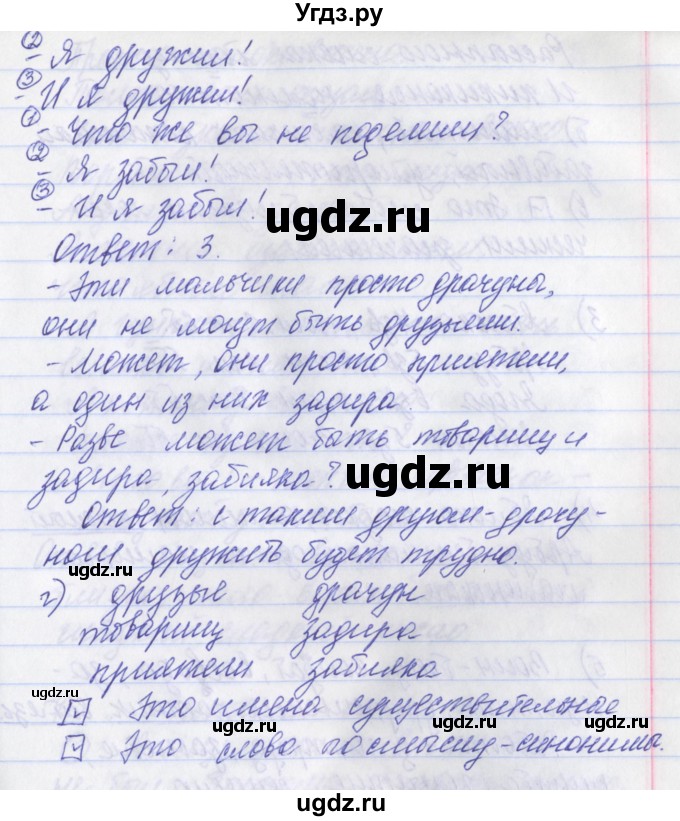 Угдз.ру
② - Я дружил!
③ - И я дружил!
① - Что же вы не поделили?
② - Я забыл!
③ - И я забыл!
ugdz.ru
Ответ: 3.
- Эти мальчики просто драчуна,
они не могут быть друзьями.
- Может, они просто приятели,
а один из них задира.
- Разве может быть товарищ и
задира, забияка?
ugdz.ru
Ответ: с таким другом-драчу-
ном дружить будет трудно.
ugdz.ru
ugdz.ru
г) друзья драчун
товарищ задира
приятели забияка
ugdz.ru
☑ Это имена существительные
ugdz.ru
ugdz.ru
☑ Это слова по смыслу-синонимы.
ugdz.ru
ugdz.ru